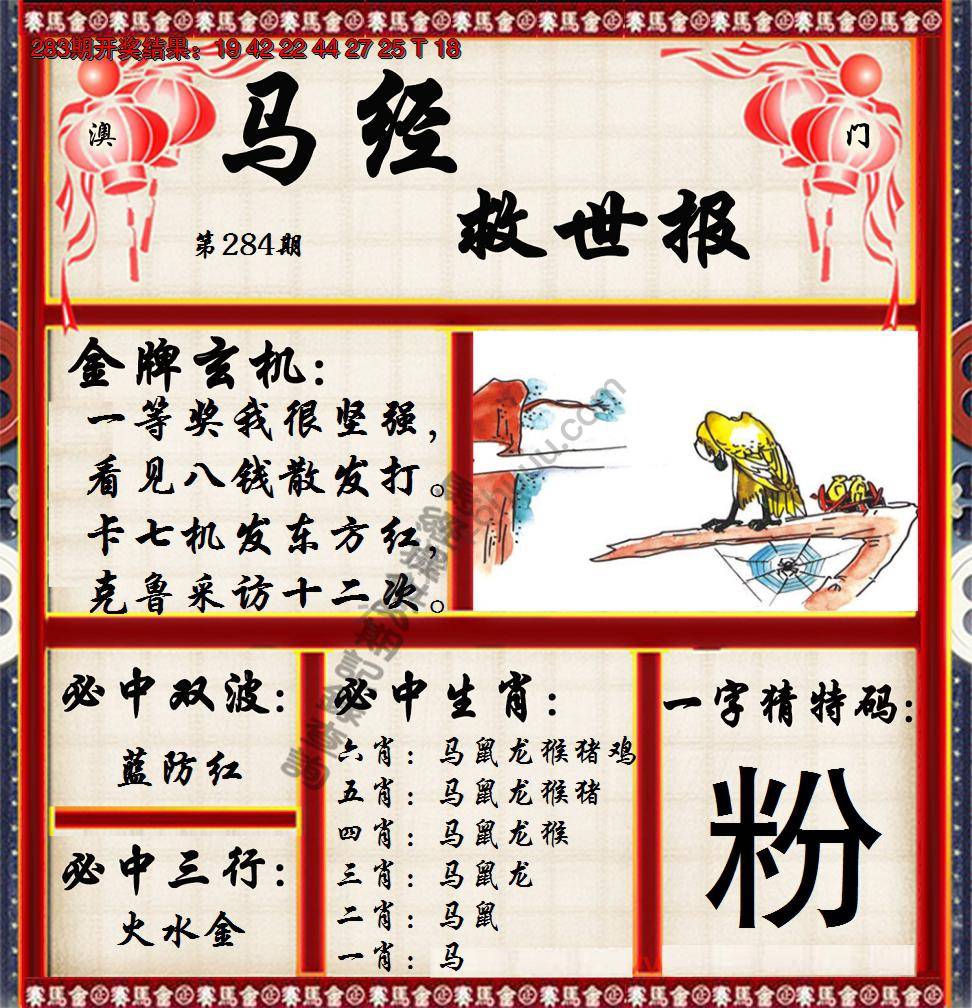 283期开奖结果：19 42 22 44 27 25 T 18
澳
门
马经
救世报
第284期
金牌玄机：
一等奖我很坚强，
看见八钱散发打。
卡七机发东方红，
克鲁采访十二次。
必中双波：
蓝防红
必中三行：
火水金
必中生肖：
六肖：马鼠龙猴猪鸡
五肖：马鼠龙猴猪
四肖：马鼠龙猴
三肖：马鼠龙
二肖：马鼠
一肖：马
一字猜特码：
粉